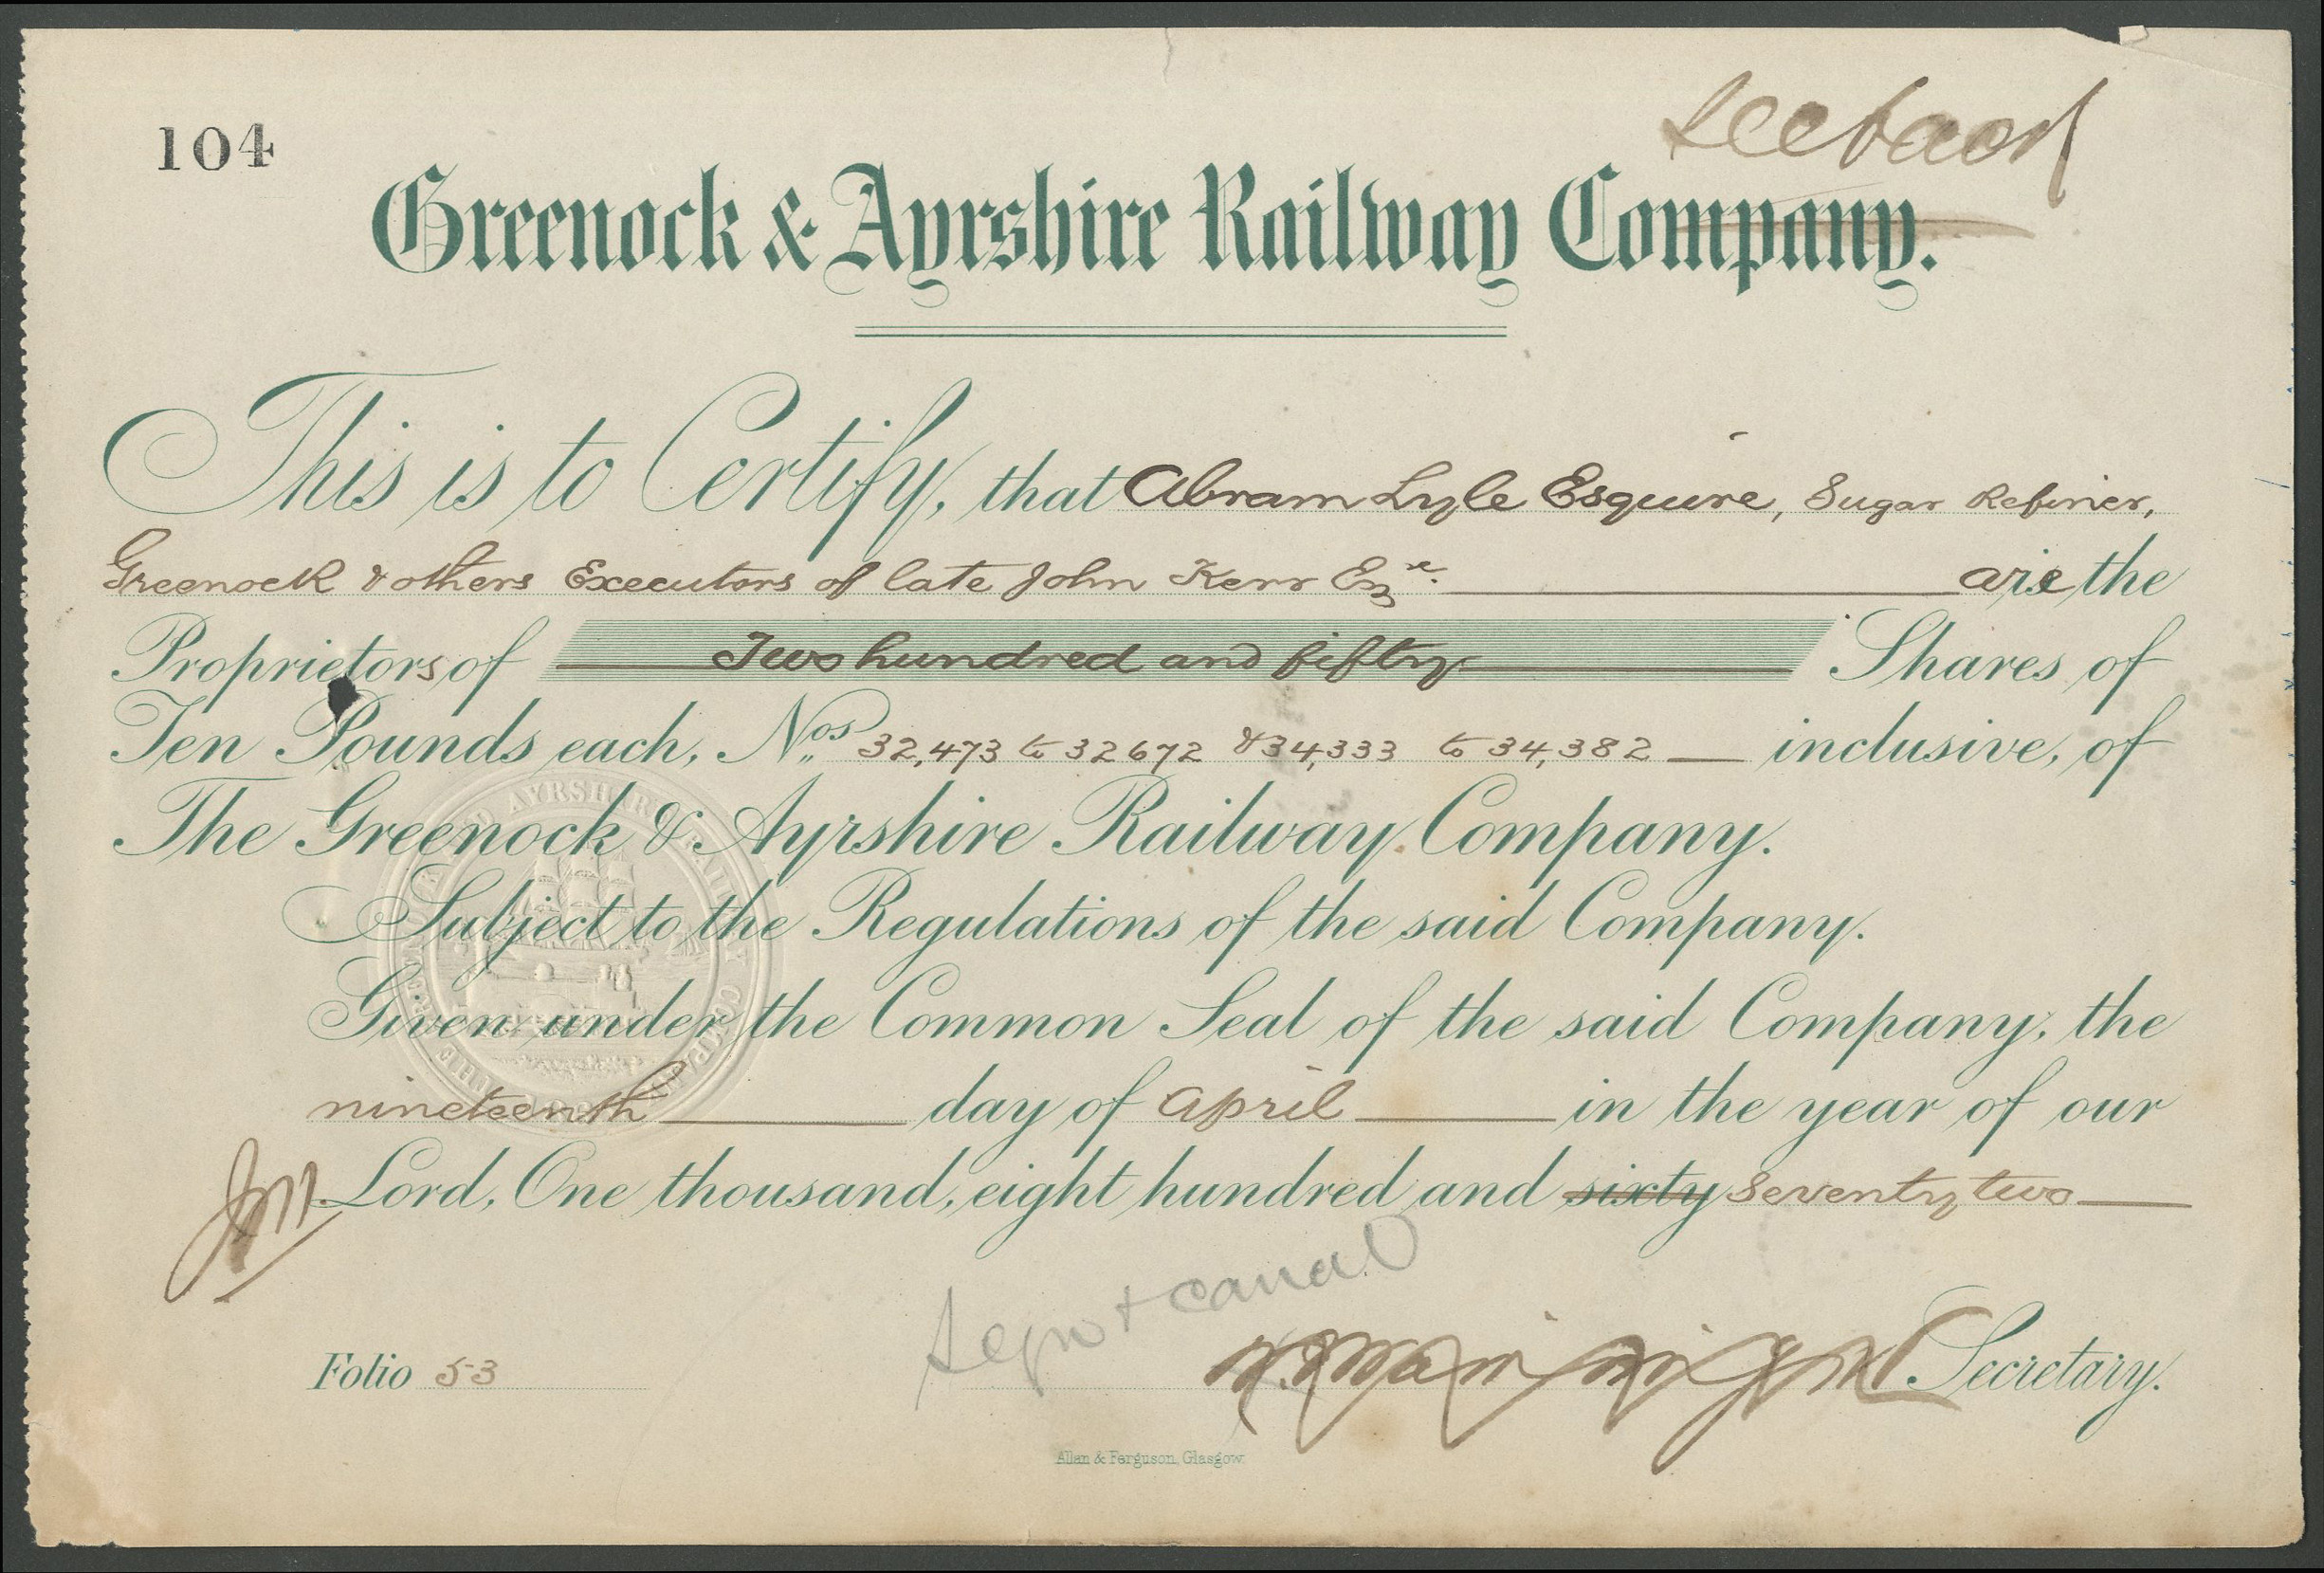 104
see back
Greenock & Ayrshire Railway Company.
This is to Certify, that Abram Lyle Esquire, Sugar Refiner,
Greenock & others Executors of late John Kerr Esqre. are the
Proprietors of Two hundred and fifty Shares of
Ten Pounds each, Nos. 32,473 to 32672 & 34,333 to 34,382 inclusive, of
The Greenock & Ayrshire Railway Company.
Subject to the Regulations of the said Company.
Given under the Common Seal of the said Company, the
nineteenth day of April in the year of our
Lord, One thousand, eight hundred and sixty seventy two
+ canal
Folio 53
Secretary.
Allan & Ferguson, Glasgow.
AYRSHIRE RAILWAY COMPANY